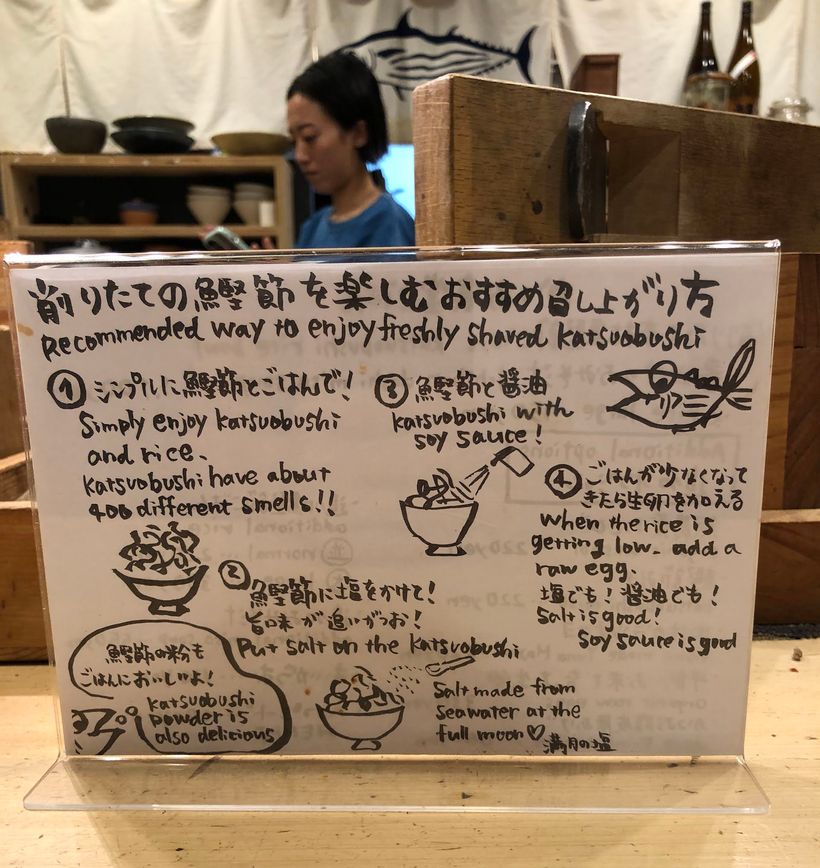 削りたての鰹節を楽しむおすすめ召し上がり方
Recommended way to enjoy freshly shaved katsuobushi
① シンプルに鰹節とごはんで！
Simply enjoy katsuobushi
and rice.
katsuobushi have about
400 different smells!!
② 鰹節に塩をかけて！
旨味が追いがつお！
Put salt on the katsuobushi
Salt made from
seawater at the
full moon♡
満月の塩
③ 鰹節と醤油
katsuobushi with
soy sauce!
④ ごはんが少なくなって
きたら生卵を加える
when the rice is
getting low. add a
raw egg.
塩でも！醤油でも！
Salt is good!
Soy sauce is good
鰹節の粉も
ごはんにおいしいよ！
katsuobushi
powder is
also delicious